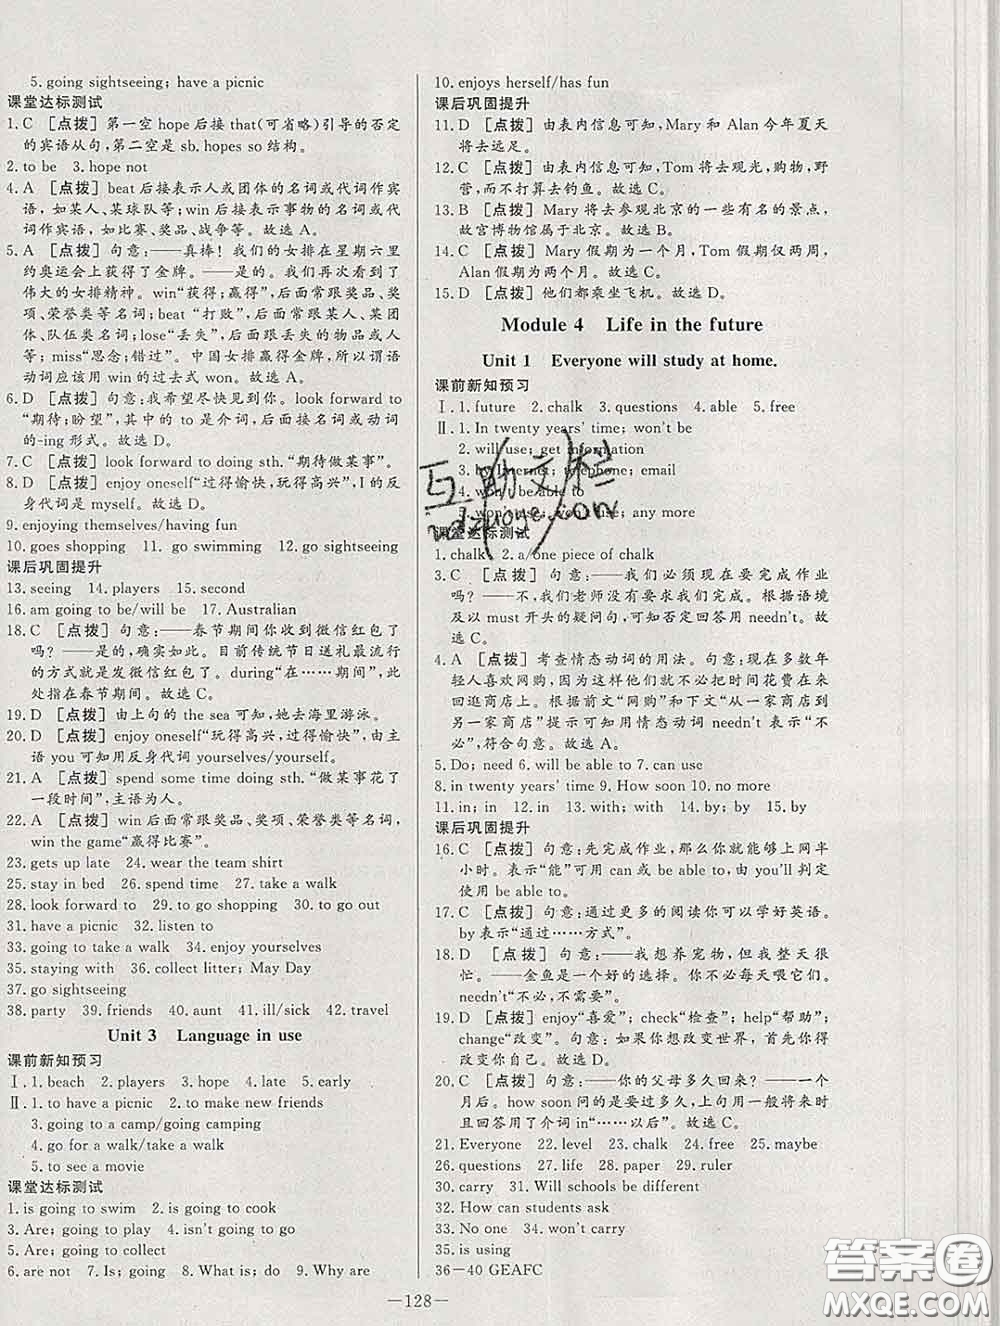 5. going sightseeing; have a picnic
课堂达标测试
1. C ［点拨］第一空 hope 后接 that(可省略)引导的否定
的宾语从句，第二空是 sb. hopes so 结构。
2. to be 3. hope not
4. A ［点拨］beat 后接表示人或团体的名词或代词作宾
语，如某人、某球队等；win 后接表示事物的名词或代
词作宾语，如比赛、奖品、战争等。故选 A。
5. A ［点拨］句意：——真棒！我们的女排在星期六里
约奥运会上获得了金牌。——是的。我们再次看到了
伟大的女排精神。win“获得；赢得”，后面常跟奖品、奖
项、荣誉类等名词；beat “打败”，后面常跟某人、某团
体、队伍类名词；lose“丢失”，后面常跟丢失的事物名词
等；miss“思念；错过”。中国女排赢得金牌，所以谓语
动词应该用 win 的过去式 won。故选 A。
6. D ［点拨］句意：我希望尽快见到你。look forward to
“期待；盼望”，其中的 to 是介词，后面接名词或动词
的-ing 形式。故选 D。
7. C ［点拨］look forward to doing sth. “期待做某事”。
8. D ［点拨］enjoy oneself“过得愉快，玩得高兴”，I 的反
身代词是 myself。故选 D。
9. enjoying themselves/having fun
10. goes shopping 11. go swimming 12. go sightseeing
课后巩固提升
13. seeing 14. players 15. second
16. am going to be/will be 17. Australian
18. C ［点拨］句意：——春节期间你收到微信红包了
吗？——是的，确实如此。目前传统节日送礼最流行
的方式就是发微信红包了。during“在……期间”，此
处指在春节期间。故选 C。
19. D ［点拨］由上句的 the sea 可知，她去海里游泳。
20. D ［点拨］enjoy oneself“玩得高兴，过得愉快”，由主
语 you 可知用反身代词 yourselves/yourself。
21. A ［点拨］spend some time doing sth. “做某事花了
一段时间”，主语为人。
22. A ［点拨］win 后面常跟奖品、奖项、荣誉类等名词，
win the game“赢得比赛”。
23. gets up late 24. wear the team shirt
25. stay in bed 26. spend time 27. take a walk
28. look forward to 29. to go shopping 30. to go out
31. have a picnic 32. listen to
33. going to take a walk 34. enjoy yourselves
35. staying with 36. collect litter; May Day
37. go sightseeing
38. party 39. friends 40. aunt 41. ill/sick 42. travel
Unit 3 Language in use
课前新知预习
Ⅰ. 1. beach 2. players 3. hope 4. late 5. early
Ⅱ. 1. to have a picnic 2. to make new friends
3. going to a camp/going camping
4. go for a walk/take a walk
5. to see a movie
课堂达标测试
1. is going to swim 2. is going to cook
3. Are; going to play 4. isn't going to go
5. Are; going to collect
6. are not 7. Is; going 8. What is; do 9. Why are
10. enjoys herself/has fun
课后巩固提升
11. D ［点拨］由表内信息可知，Mary 和 Alan 今年夏天
将去远足。
12. C ［点拨］由表内信息可知，Tom 将去观光，购物，野
营，而不打算去钓鱼。故选 C。
13. B ［点拨］Mary 将去参观北京的一些有名的景点，
故宫博物馆属于北京。故选 B。
14. C ［点拨］Mary 假期为一个月，Tom 假期仅两周，
Alan 假期为两个月。故选 C。
15. D ［点拨］他们都乘坐飞机。故选 D。
Module 4 Life in the future
Unit 1 Everyone will study at home.
课前新知预习
Ⅰ. 1. future 2. chalk 3. questions 4. able 5. free
Ⅱ. 1. In twenty years' time; won't be
2. will use; get information
3. by Internet; telephone; email
4. won't be able to
5. won't use; use; any more
课堂达标测试
1. chalk 2. a/one piece of chalk
3. C ［点拨］句意：——我们必须现在要完成作业
吗？——不，我们老师没有要求我们完成。根据语境
及以 must 开头的疑问句，可知否定回答用 needn't。故
选 C。
4. A ［点拨］考查情态动词的用法。句意：现在多数年
轻人喜欢网购，因为这样他们就不必把时间花费在来
回逛商店上。根据前文“网购”和下文“从一家商店到
另一家商店”提示可知用情态动词 needn't 表示“不
必”，符合句意。故选 A。
5. Do; need 6. will be able to 7. can use
8. in twenty years' time 9. How soon 10. no more
11. in; in 12. in 13. with; with 14. by; by 15. by
课后巩固提升
16. C ［点拨］句意：先完成作业，那么你就能够上网半
小时。表示“能”可用 can 或 be able to，由 you'll 判定
使用 be able to。
17. C ［点拨］句意：通过更多的阅读你可以学好英语。
by 表示“通过……方式”。
18. D ［点拨］句意：——我想养宠物，但我整天很
忙。——金鱼是一个好的选择。你不必每天喂它们。
needn't“不必，不需要”。
19. D ［点拨］enjoy“喜爱”；check“检查”；help“帮助”；
change“改变”。句意：如果你想改变世界，首先你得
改变你自己。故选 D。
20. C ［点拨］句意：——你的父母多久回来？——一个
月后。how soon 问的是要过多久，上句用一般将来时
且回答用了介词 in“……以后”。故选 C。
21. Everyone 22. level 23. chalk 24. free 25. maybe
26. questions 27. life 28. paper 29. ruler
30. carry 31. Will schools be different
32. How can students ask
33. No one 34. won't carry
35. is using
36－40 GEAFC
—128—
答案圈
MXQE.COM